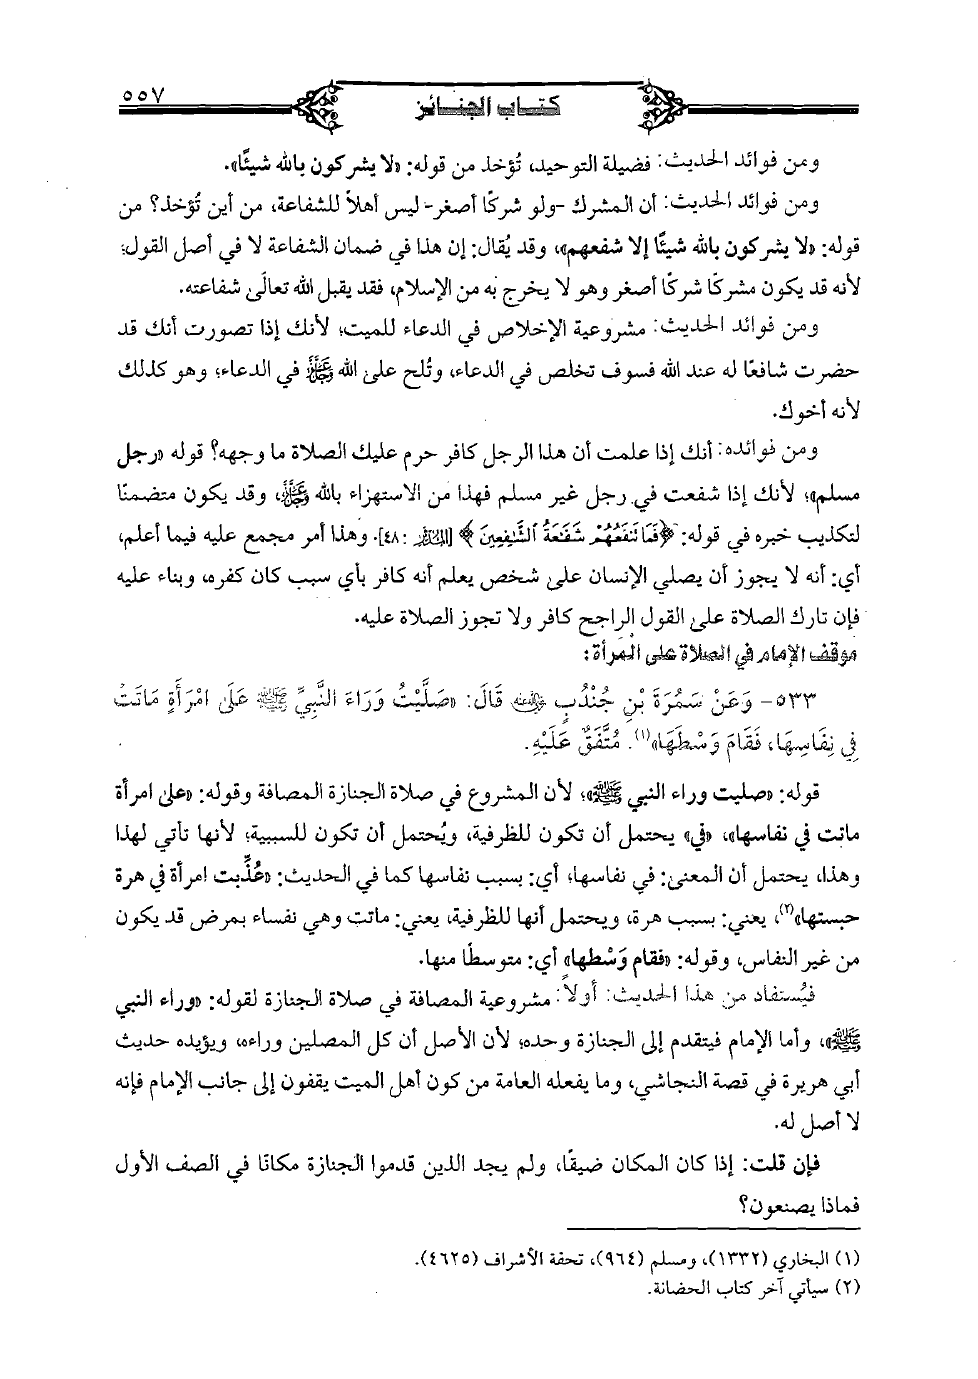 ٥٥٧
كتاب الجنائز
ومن فوائد الحديث: فضيلة التوحيد، تُؤخذ من قوله: «لا يشركون بالله شيئًا».
ومن فوائد الحديث: أن المشرك -ولو شركًا أصغر- ليس أهلاً للشفاعة، من أين تُؤخذ؟ من
قوله: «لا يشركون بالله شيئًا إلا شفعهم»، وقد يُقال: إن هذا في ضمان الشفاعة لا في أصل القول؛
لأنه قد يكون مشركًا شركًا أصغر وهو لا يخرج به من الإسلام، فقد يقبل الله تعالى شفاعته.
ومن فوائد الحديث: مشروعية الإخلاص في الدعاء للميت؛ لأنك إذا تصورت أنك قد
حضرت شافعًا له عند الله فسوف تخلص في الدعاء، وتُلح على الله ﷻ في الدعاء؛ وهو كذلك
لأنه أخوك.
ومن فوائده: أنك إذا علمت أن هذا الرجل كافر حرم عليك الصلاة ما وجهه؟ قوله «رجل
مسلم»؛ لأنك إذا شفعت في رجل غير مسلم فهذا من الاستهزاء بالله ﷻ، وقد يكون متضمنًا
لتكذيب خبره في قوله: ﴿فَمَا تَنفَعُهُمْ شَفَعَةُ ٱلشَّٰفِعِينَ﴾ [المدثر: ٤٨]. وهذا أمر مجمع عليه فيما أعلم،
أي: أنه لا يجوز أن يصلي الإنسان على شخص يعلم أنه كافر بأي سبب كان كفره، وبناء عليه
فإن تارك الصلاة على القول الراجح كافر ولا تجوز الصلاة عليه.
موقف الإمام في الصلاة على المرأة:
٥٣٣- وَعَنْ سَمُرَةَ بْنِ جُنْدُبٍ رضي الله عنه قَالَ: «صَلَّيْتُ وَرَاءَ النَّبِيِّ ﷺ عَلَى امْرَأَةٍ مَاتَتْ
فِي نِفَاسِهَا، فَقَامَ وَسْطَهَا»(١). مُتَّفَقٌ عَلَيْهِ.
قوله: «صليت وراء النبي ﷺ»؛ لأن المشروع في صلاة الجنازة المصافة وقوله: «على امرأة
ماتت في نفاسها»، «في» يحتمل أن تكون للظرفية، ويُحتمل أن تكون للسببية؛ لأنها تأتي لهذا
وهذا، يحتمل أن المعنى: في نفاسها؛ أي: بسبب نفاسها كما في الحديث: «عُذِّبت امرأة في هرة
حبستها»(٢)، يعني: بسبب هرة، ويحتمل أنها للظرفية، يعني: ماتت وهي نفساء بمرض قد يكون
من غير النفاس، وقوله: «فقام وَسْطها» أي: متوسطًا منها.
فيُستفاد من هذا الحديث: أولاً: مشروعية المصافة في صلاة الجنازة لقوله: «وراء النبي
ﷺ»، وأما الإمام فيتقدم إلى الجنازة وحده؛ لأن الأصل أن كل المصلين وراءه، ويؤيده حديث
أبي هريرة في قصة النجاشي، وما يفعله العامة من كون أهل الميت يقفون إلى جانب الإمام فإنه
لا أصل له.
فإن قلت: إذا كان المكان ضيقًا، ولم يجد الذين قدموا الجنازة مكانًا في الصف الأول
فماذا يصنعون؟
(١) البخاري (١٣٣٢)، ومسلم (٩٦٤)، تحفة الأشراف (٤٦٢٥).
(٢) سيأتي آخر كتاب الحضانة.